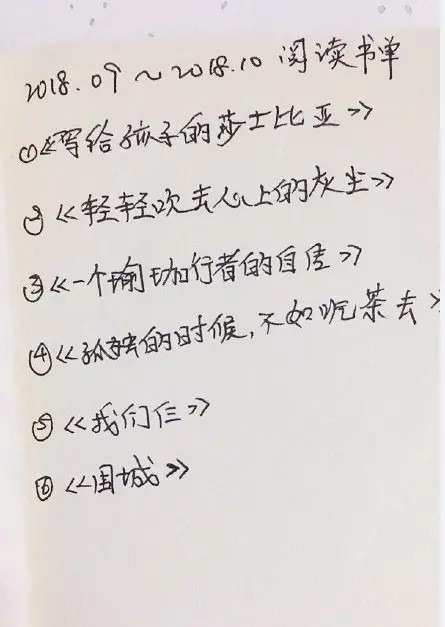 2018.09～2018.10 阅读书单
①《写给孩子的莎士比亚》
②《轻轻吹去心上的灰尘》
③《一个瑜珈行者的自传》
④《孤独的时候,不如吃茶去》
⑤《我们仨》
⑥《围城》